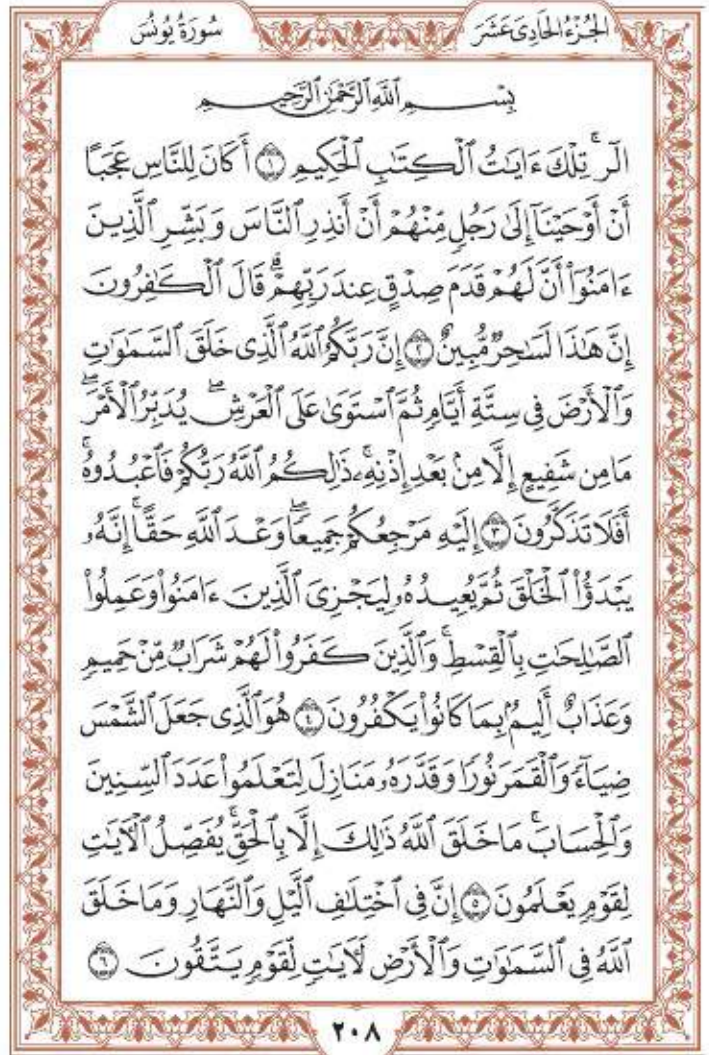 الجُزْءُ الحَادِىَ عَشَرَ
سُورَةُ يُونُسَ
بِسْمِ ٱللَّهِ ٱلرَّحْمَٰنِ ٱلرَّحِيمِ
الٓر ۚ تِلْكَ ءَايَٰتُ ٱلْكِتَٰبِ ٱلْحَكِيمِ ١ أَكَانَ لِلنَّاسِ عَجَبًا
أَنْ أَوْحَيْنَآ إِلَىٰ رَجُلٍ مِّنْهُمْ أَنْ أَنذِرِ ٱلنَّاسَ وَبَشِّرِ ٱلَّذِينَ
ءَامَنُوٓا۟ أَنَّ لَهُمْ قَدَمَ صِدْقٍ عِندَ رَبِّهِمْ ۗ قَالَ ٱلْكَٰفِرُونَ
إِنَّ هَٰذَا لَسَٰحِرٌ مُّبِينٌ ٢ إِنَّ رَبَّكُمُ ٱللَّهُ ٱلَّذِى خَلَقَ ٱلسَّمَٰوَٰتِ
وَٱلْأَرْضَ فِى سِتَّةِ أَيَّامٍ ثُمَّ ٱسْتَوَىٰ عَلَى ٱلْعَرْشِ ۖ يُدَبِّرُ ٱلْأَمْرَ ۖ
مَا مِن شَفِيعٍ إِلَّا مِنۢ بَعْدِ إِذْنِهِۦ ۚ ذَٰلِكُمُ ٱللَّهُ رَبُّكُمْ فَٱعْبُدُوهُ ۚ
أَفَلَا تَذَكَّرُونَ ٣ إِلَيْهِ مَرْجِعُكُمْ جَمِيعًا ۖ وَعْدَ ٱللَّهِ حَقًّا ۚ إِنَّهُۥ
يَبْدَؤُا۟ ٱلْخَلْقَ ثُمَّ يُعِيدُهُۥ لِيَجْزِىَ ٱلَّذِينَ ءَامَنُوا۟ وَعَمِلُوا۟
ٱلصَّٰلِحَٰتِ بِٱلْقِسْطِ ۚ وَٱلَّذِينَ كَفَرُوا۟ لَهُمْ شَرَابٌ مِّنْ حَمِيمٍ
وَعَذَابٌ أَلِيمٌۢ بِمَا كَانُوا۟ يَكْفُرُونَ ٤ هُوَ ٱلَّذِى جَعَلَ ٱلشَّمْسَ
ضِيَآءً وَٱلْقَمَرَ نُورًا وَقَدَّرَهُۥ مَنَازِلَ لِتَعْلَمُوا۟ عَدَدَ ٱلسِّنِينَ
وَٱلْحِسَابَ ۚ مَا خَلَقَ ٱللَّهُ ذَٰلِكَ إِلَّا بِٱلْحَقِّ ۚ يُفَصِّلُ ٱلْءَايَٰتِ
لِقَوْمٍ يَعْلَمُونَ ٥ إِنَّ فِى ٱخْتِلَٰفِ ٱلَّيْلِ وَٱلنَّهَارِ وَمَا خَلَقَ
ٱللَّهُ فِى ٱلسَّمَٰوَٰتِ وَٱلْأَرْضِ لَءَايَٰتٍ لِّقَوْمٍ يَتَّقُونَ ٦
٢٠٨